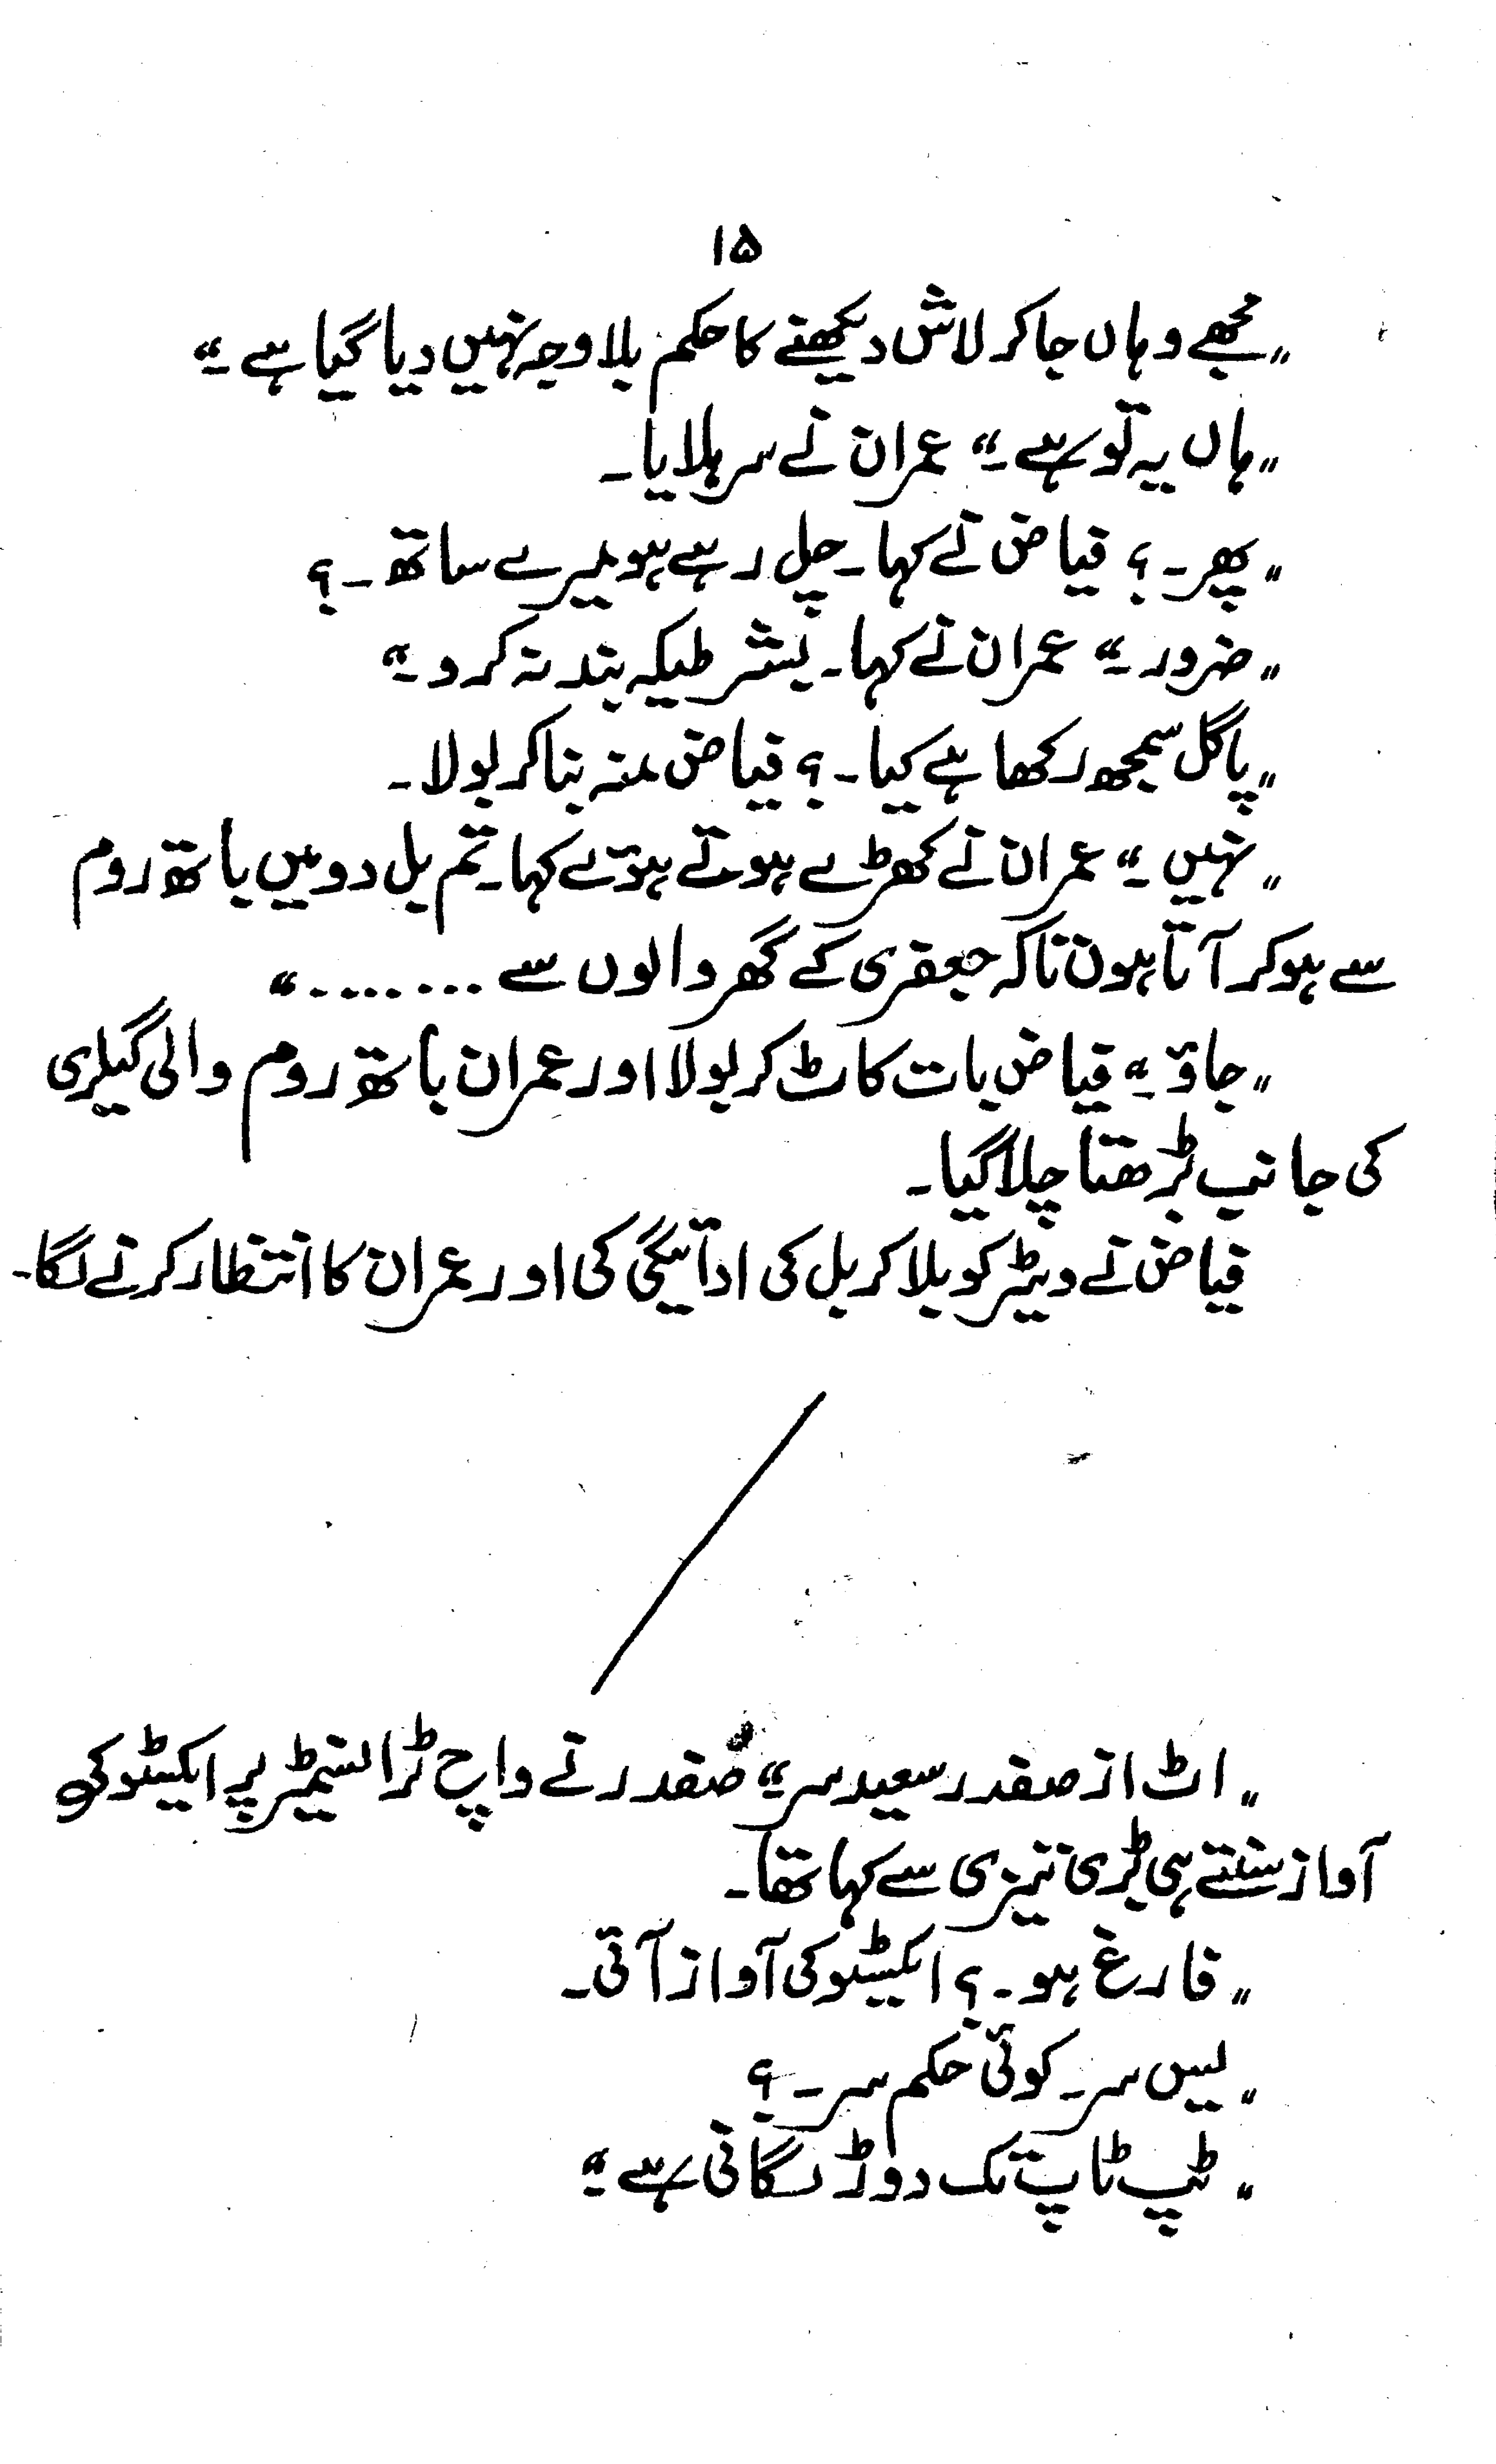 ۱۵
"مجھے وہاں جا کر لاش دیکھنے کا حکم بلا وجہ نہیں دیا گیا ہے۔"
"ہاں یہ تو ہے۔" عمران نے سر ہلایا۔
"پھر۔؟ فیاض نے کہا۔ چل رہے ہو میرے ساتھ۔؟
"ضرور۔" عمران نے کہا۔ بشرطیکہ بند نہ کرو۔"
"پاگل سمجھ رکھا ہے کیا۔؟ فیاض منہ بنا کر بولا۔
"نہیں۔" عمران نے کھڑے ہوتے ہوئے کہا۔ تم بل دو میں باتھ روم
سے ہو کر آتا ہوں تاکہ جعفری کے گھر والوں سے ........"
"جاؤ۔" فیاض بات کاٹ کر بولا اور عمران باتھ روم والی گیلری
کی جانب بڑھتا چلا گیا۔
فیاض نے ویٹر کو بلا کر بل کی ادائیگی کی اور عمران کا انتظار کرنے لگا۔
"اٹ از صفدر سعید سر۔" صفدر نے واچ ٹرانسمیٹر پر ایکسٹو کی
آواز سنتے ہی بڑی تیزی سے کہا تھا۔
"فارغ ہو۔؟ ایکسٹو کی آواز آئی۔
"یس سر۔ کوئی حکم سر۔؟
"ٹپ ٹاپ تک دوڑ لگانی ہے۔"